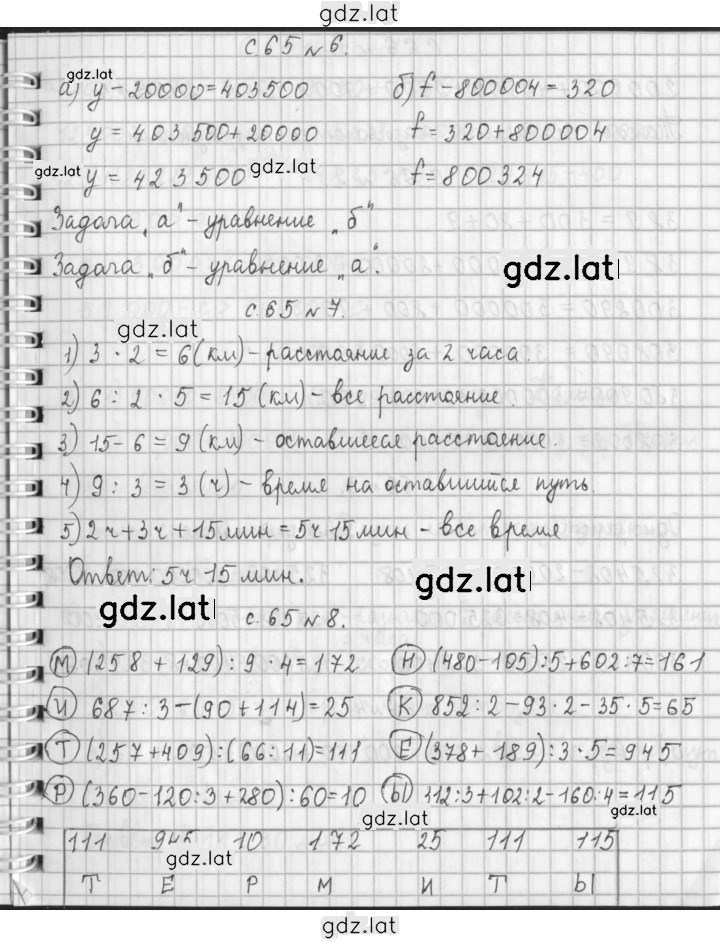 gdz.lat
с. 65 № 6.
gdz.lat
а) y - 20000 = 403500 б) f - 800004 = 320
y = 403 500 + 20000 f = 320 + 800004
gdz.lat y = 423 500 gdz.lat f = 800324
Задача „а“ - уравнение „б“
Задача „б“ - уравнение „а“.
gdz.lat
с. 65 № 7.
gdz.lat
1) 3 · 2 = 6 (км) - расстояние за 2 часа.
2) 6 : 2 · 5 = 15 (км) - все расстояние.
3) 15 - 6 = 9 (км) - оставшееся расстояние.
4) 9 : 3 = 3 (ч) - время на оставшийся путь.
5) 2 ч + 3 ч + 15 мин = 5 ч 15 мин - все время
Ответ: 5 ч 15 мин.
gdz.lat
gdz.lat
с. 65 № 8.
М (258 + 129) : 9 · 4 = 172 Н (480 - 105) : 5 + 602 : 7 = 161
И 687 : 3 - (90 + 114) = 25 К 852 : 2 - 93 · 2 - 35 · 5 = 65
Т (257 + 409) : (66 : 11) = 111 Е (378 + 189) : 3 · 5 = 945
Р (360 - 120 : 3 + 280) : 60 = 10 Ы 312 : 3 + 102 : 2 - 160 : 4 = 115
gdz.lat
gdz.lat
111 945 10 172 25 111 115
gdz.lat
Т Е Р М И Т Ы
gdz.lat